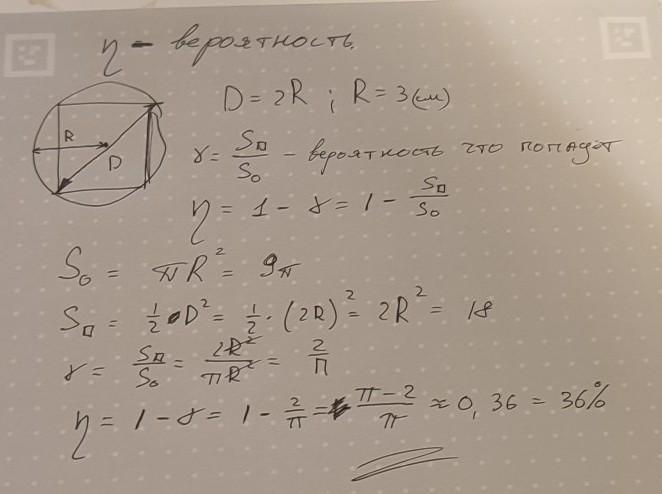 η — вероятность.
D = 2R ; R = 3(см)
R
D
γ = S□/S○ – вероятность что попадёт
η = 1 - γ = 1 - S□/S○
S○ = πR² = 9π
S□ = 1/2 • D² = 1/2 · (2R)² = 2R² = 18
γ = S□/S○ = 2R²/πR² = 2/π
η = 1 - γ = 1 - 2/π = π-2/π ≈ 0,36 = 36%